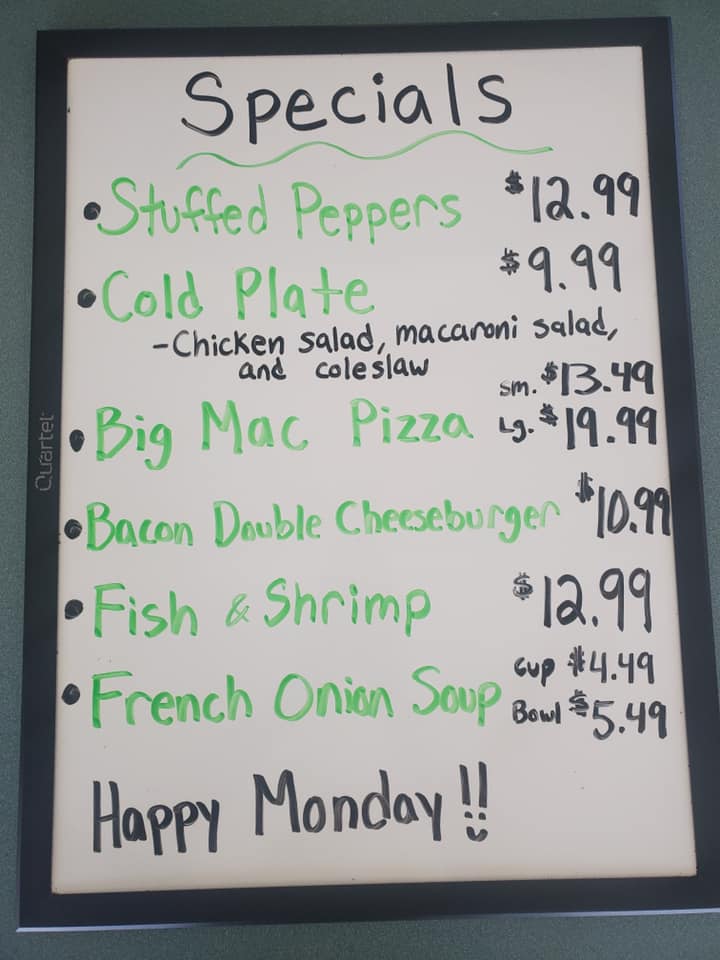 Specials
• Stuffed Peppers $12.99
• Cold Plate $9.99
- Chicken salad, macaroni salad,
and coleslaw
sm. $13.49
• Big Mac Pizza Lg. $19.99
• Bacon Double Cheeseburger $10.99
• Fish & Shrimp $12.99
cup $4.49
• French Onion Soup Bowl $5.49
Happy Monday!!
Quartet